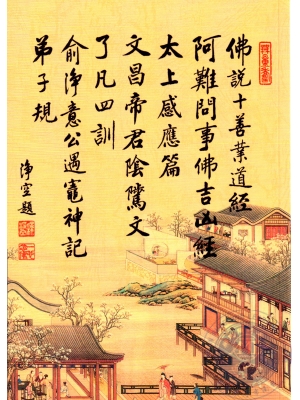 佛説十善業道經
阿難問事佛吉凶經
太上感應篇
文昌帝君陰騭文
了凡四訓
俞淨意公遇竈神記
弟子規
淨空題